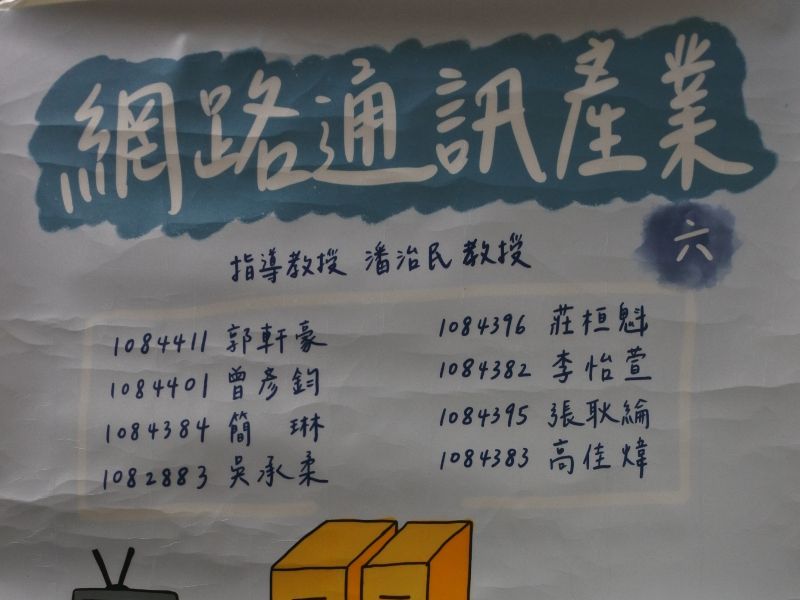 網路通訊產業
六
指導教授 潘治民 教授
1084411 郭軒豪
1084401 曾彥鈞
1084384 簡 琳
1082883 吳承柔
1084396 莊桓魁
1084382 李怡萱
1084395 張耿綸
1084383 高佳煒